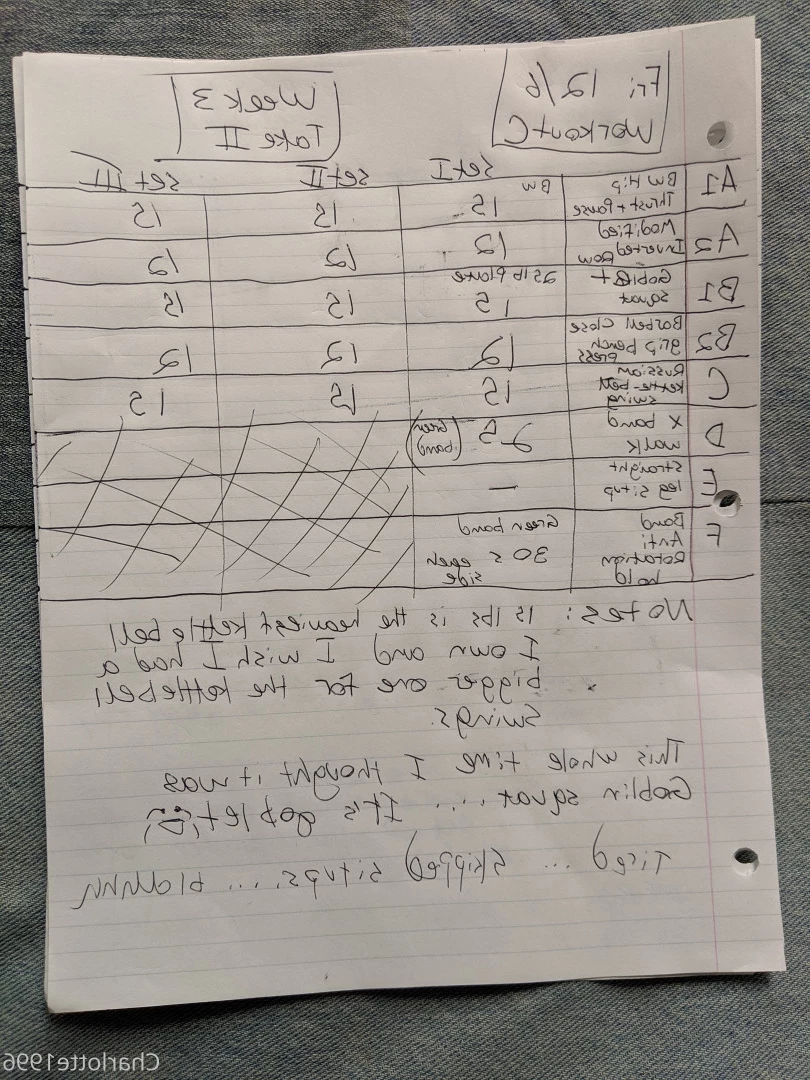 Fri 12/6
Workout C
Week 3
Take II
Set I
Set II
Set III
A1 BW Hip Thrust + Pause 15 BW 15 15
A2 Modified Inverted Row 12 12 12
B1 Goblet Squat 25 lb plate 15 15 15
B2 Barbell Close grip bench press 12 12 12
C Russian kettle-bell swing 15 15 15
D X band walk 25 (Green band)
E Straight leg situp —
F Band Anti Rotation hold Green band 30 s each side
Notes: 15 lbs is the heaviest kettlebell
I own and I wish I had a
bigger one for the kettlebell
swings.
This whole time I thought it was
Goblin squat .... It's goblet
Tired ... skipped situps.... blahhh
Charlotte1996